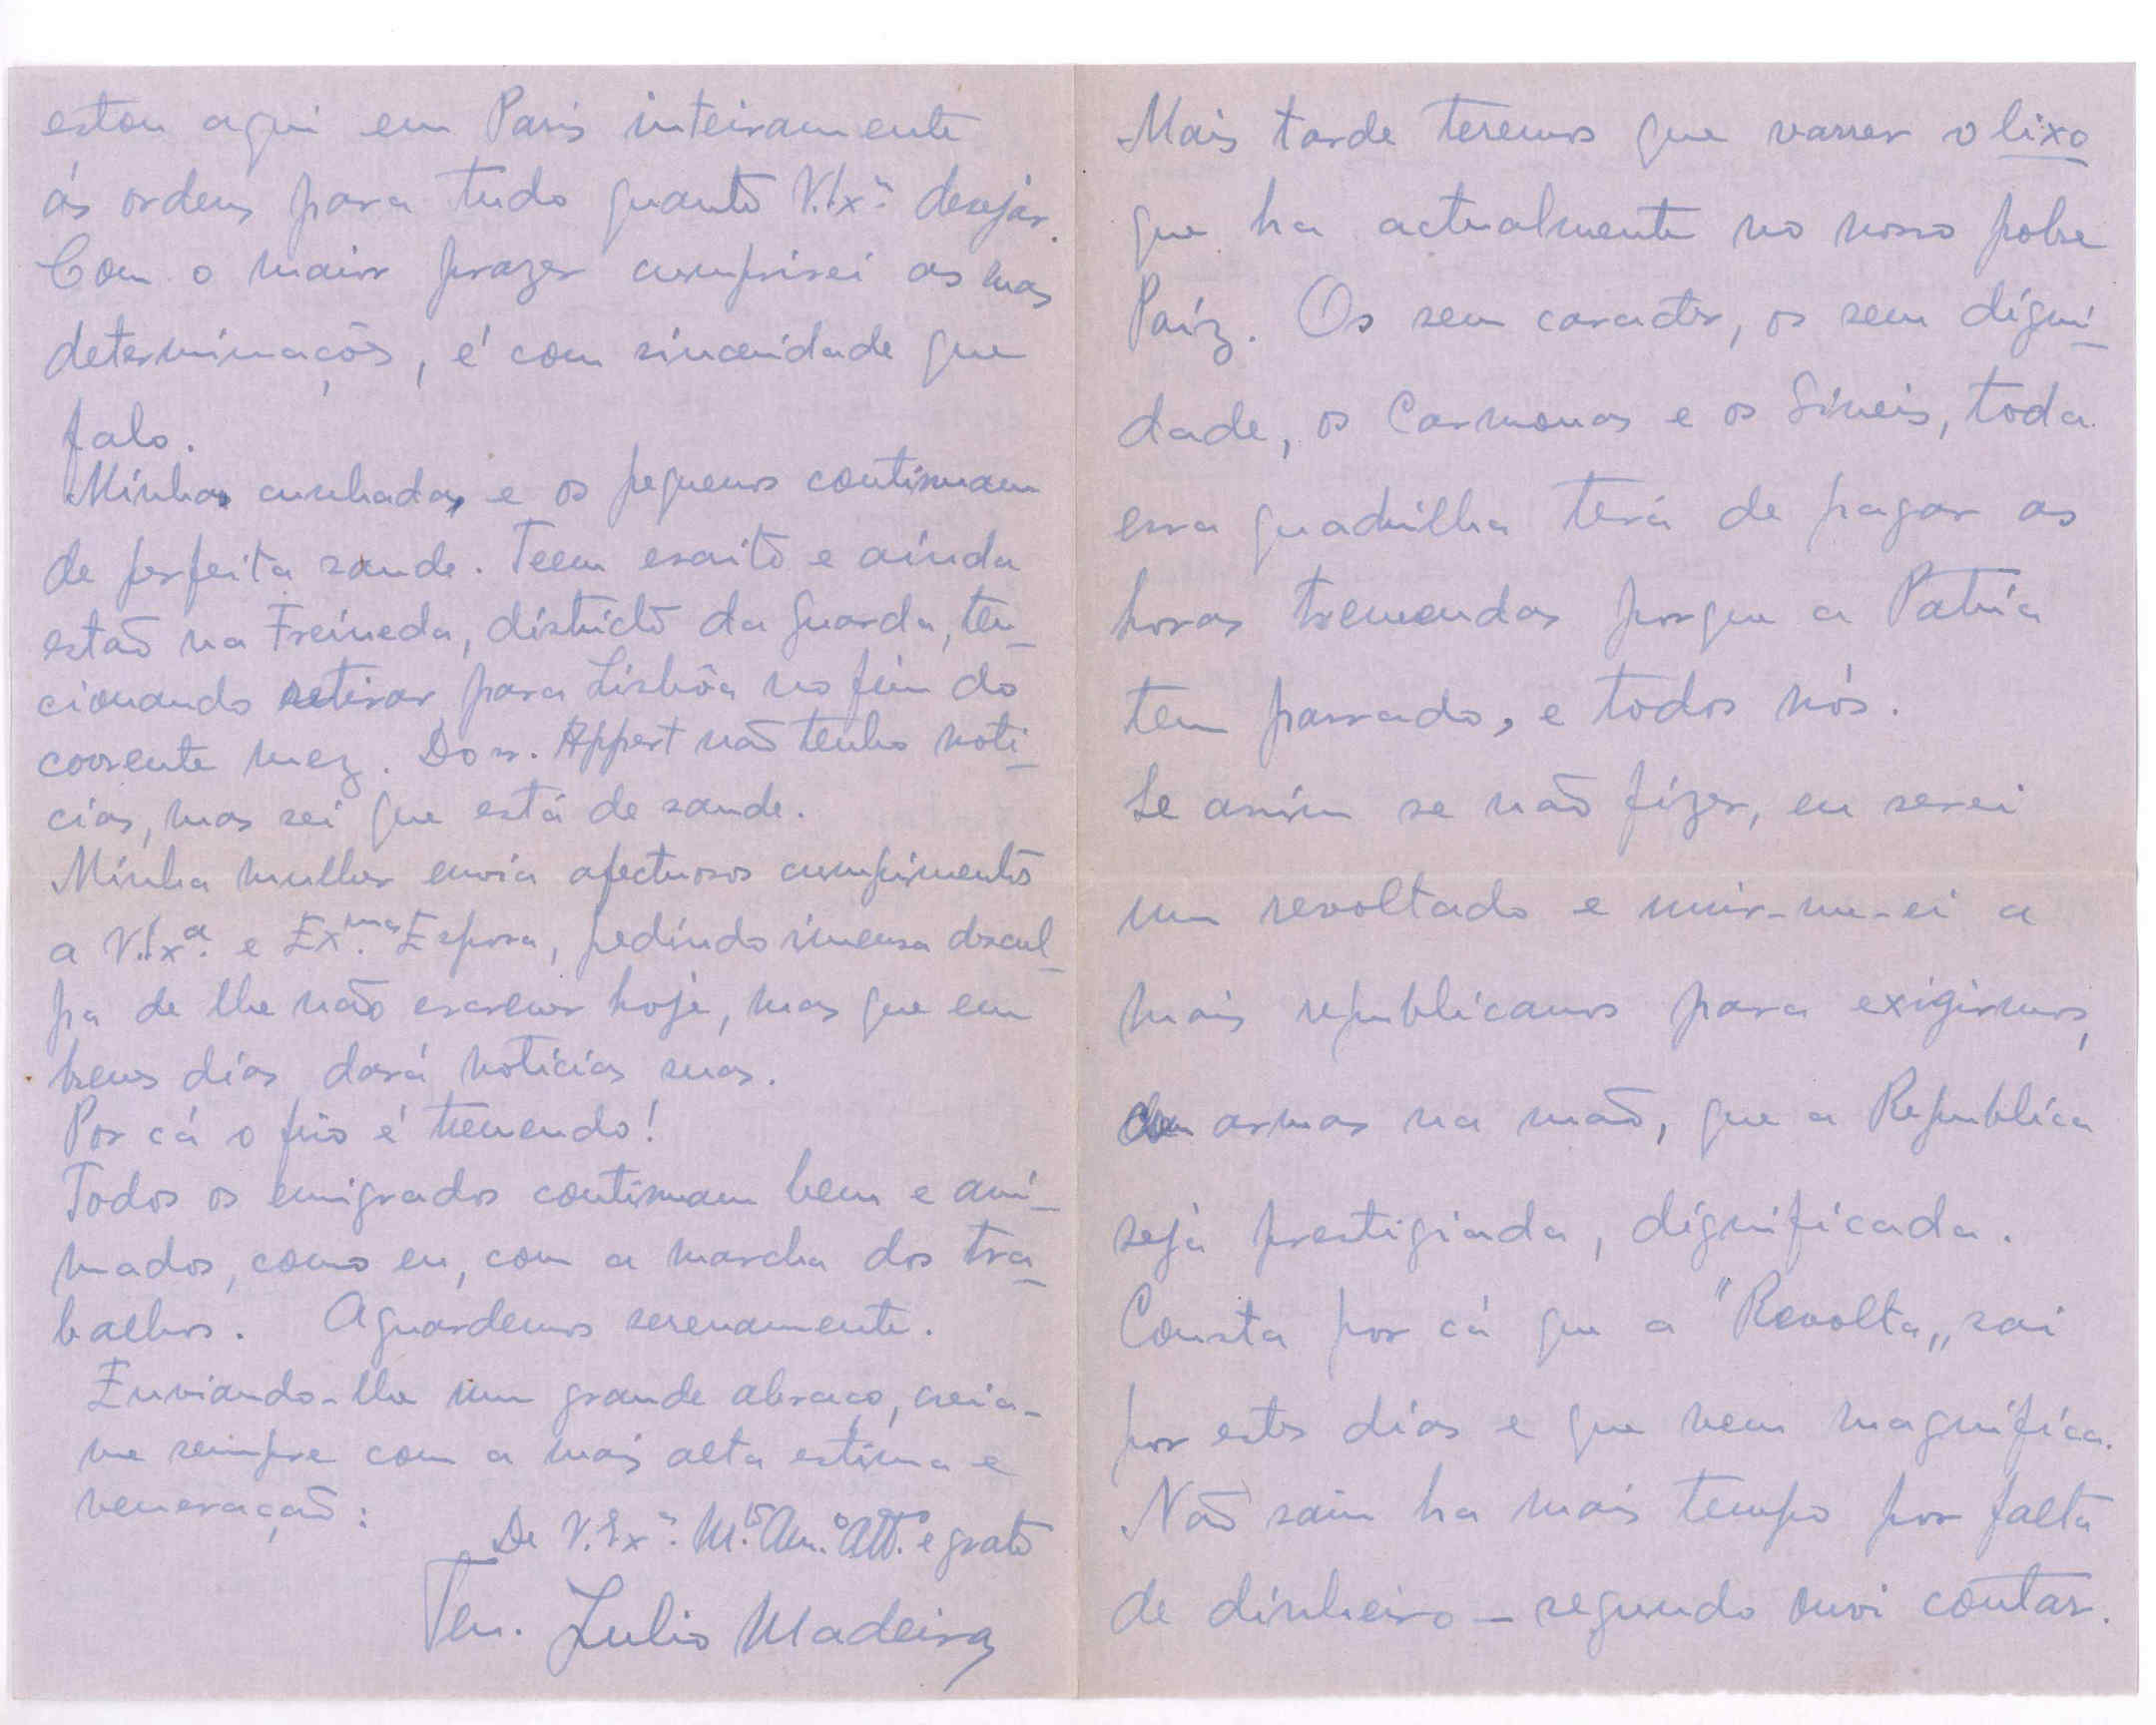 estou aqui em Paris inteiramente
ás ordens para tudo quanto V. Exª desejar.
Com o maior prazer cumprirei as suas
determinações, é com sinceridade que
falo.
Minhas cunhadas e os pequenos continuam
de perfeita saude. Teem escrito e ainda
estão na Freineda, districto da Guarda, ten-
cionando retirar para Lisbôa no fim do
corrente mez. Do sr. Appert não tenho noti-
cias, mas sei que está de saude.
Minha mulher envia afectuosos cumprimentos
a V. Exª. e Ex.mas Esposa, pedindo imensa descul-
pa de lhe não escrever hoje, mas que em
breves dias dará noticias suas.
Por cá o frio é tremendo!
Todos os emigrados continuam bem e ani-
mados, como eu, com a marcha dos tra-
balhos. Aguardemos serenamente.
Enviando-lhe um grande abraço, creia-
me sempre com a mais alta estima e
veneração:
De V. Exª. M.to Am.o Att.o e grato
Ten. Julio Madeira
Mais tarde teremos que varrer o lixo
que ha actualmente no nosso pobre
Paíz. Os sem caracter, os sem digni-
dade, os Carmonas e os Sineis, toda
essa quadrilha terá de pagar as
horas tremendas porque a Patria
tem passado, e todos nós.
Se assim se não fizer, eu serei
um revoltado e unir-me-ei a
mais republicanos para exigirmos,
de armas na mão, que a Republica
seja prestigiada, dignificada.
Consta por cá que a "Revolta„ sai
por estes dias e que vem magnifica.
Não saiu ha mais tempo por falta
de dinheiro - segundo ouvi contar.